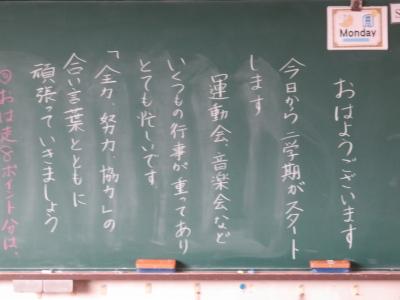 おはようございます
今日から二学期がスタート
します
運動会、音楽会など
いくつもの行事が重ってあり
とても忙しいです。
「全力、努力、協力」の
合い言葉とともに
頑張っていきましょう
おは走るポイント分は、
Monday
S